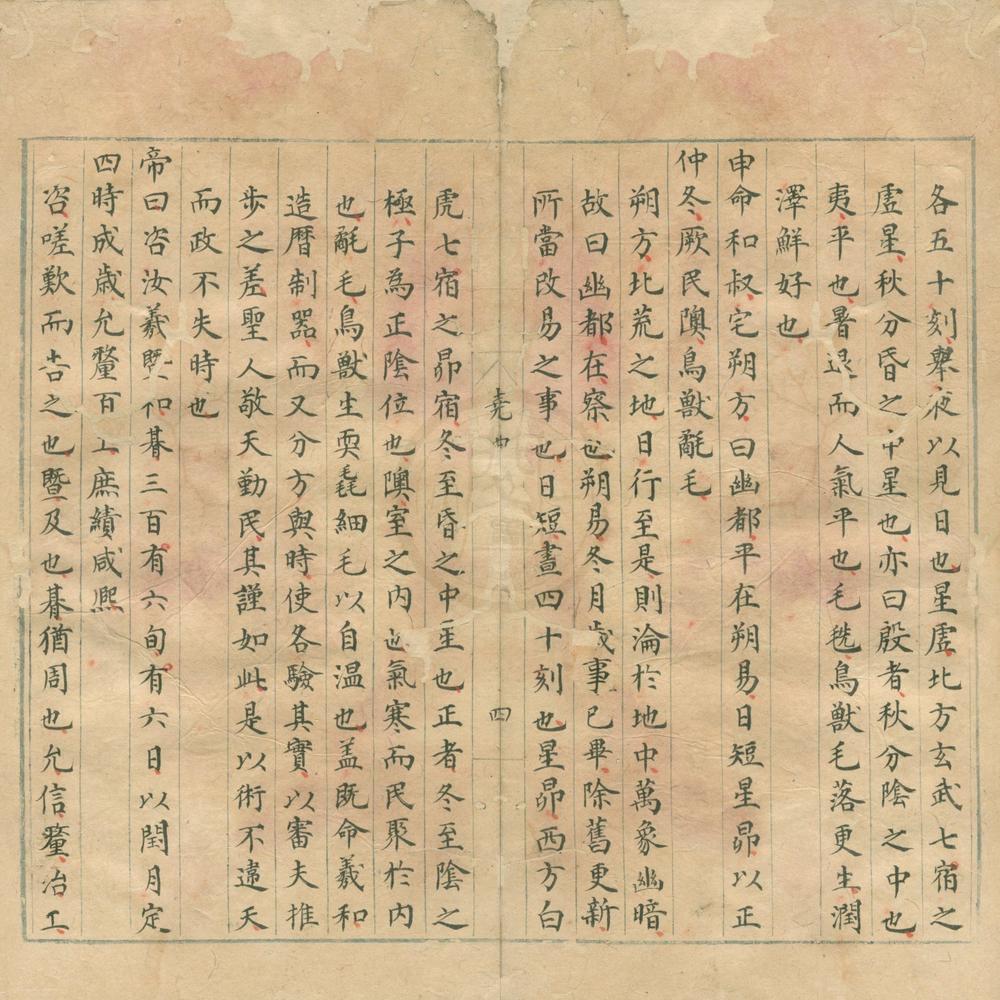 各五十刻舉夜以見日也星虛北方玄武七宿之
虛星秋分昏之中星也亦曰殷者秋分陰之中也
夷平也暑退而人氣平也毛毨鳥獸毛落更生潤
澤鮮好也
申命和叔宅朔方曰幽都平在朔易日短星昴以正
仲冬厥民隩鳥獸氄毛
朔方北荒之地日行至是則淪於地中萬象幽暗
故曰幽都在察也朔易冬月歲事已畢除舊更新
所當改易之事也日短晝四十刻也星昴西方白
堯典 四
虎七宿之昴宿冬至昏之中星也正者冬至陰之
極子為正陰位也隩室之內也氣寒而民聚於內
也氄毛鳥獸生耎毳細毛以自温也盖既命羲和
造曆制器而又分方與時使各驗其實以審夫推
步之差聖人敬天勤民其謹如此是以術不違天
而政不失時也
帝曰咨汝羲暨和朞三百有六旬有六日以閏月定
四時成歲允釐百工庶績咸熈
咨嗟歎而告之也暨及也朞猶周也允信釐治工